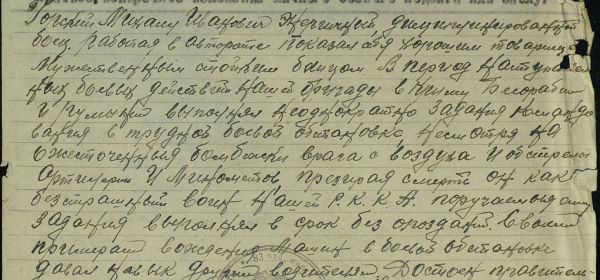 Горский Михаил Иванович Честный, дисциплинированный
боец, Работая в авторате показал себя хорошим товарищем
Мужественным стойким бойцом В период наступатель
ных боевых действий нашей бригады в
и Румынии выполнял неоднократно задания командо
вания в трудной боевой обстановке Несмотря на
ожесточенныя бомбежки врага с воздуха И обстрелы
Артилерии И Минометов презирая смерть он как
бесстрашный воин нашей Р.К.К.А. поручаемая ему
задания выполнял в срок без опозданй. Своим
примерам вождения Машин в боевой обстановке
давал навык другим водителям. Достоин правитель